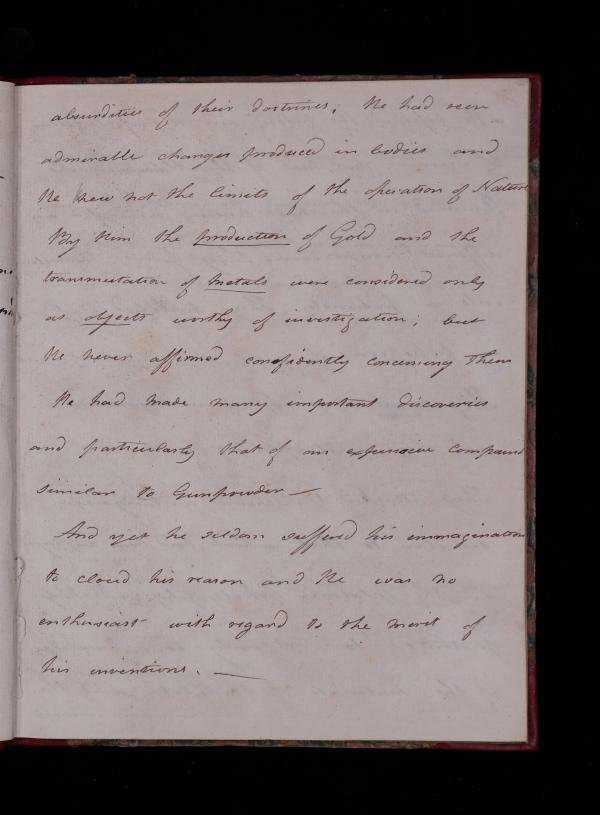 absurdities of their doctrines. He had seen
admirable changes produced in bodies and
He knew not the limits of the operation of Nature
By him the production of Gold and the
transmutation of metals were considered only
as objects worthy of investigation; but
He never affirmed confidently concerning them
He had made many important discoveries
and particularly that of an expansive compound
similar to Gunpowder —
And yet he seldom suffered his immagination
to cloud his reason and He was no
enthusiast with regard to the merit of
his inventions. —